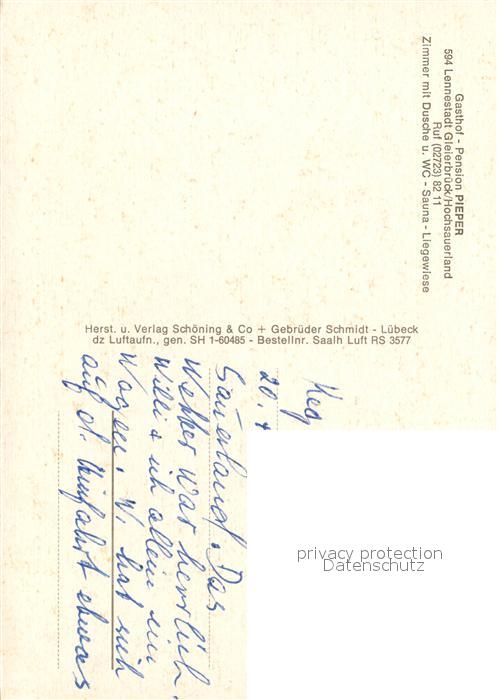 Gasthof - Pension PIEPER
594 Lennestadt Gleierbrück/Hochsauerland
Ruf (02723) 82 11
Zimmer mit Dusche u. WC - Sauna - Liegewiese
Herst. u. Verlag Schöning & Co + Gebrüder Schmidt - Lübeck
dz Luftaufn., gen. SH 1-60485 - Bestellnr. Saalh Luft RS 3577
20.4
Sauerland. Das
Wetter war herrlich.
Willi & ich allein im
Wagen. W. hat sich
auf d. Hinfahrt etwas
privacy protection
Datenschutz